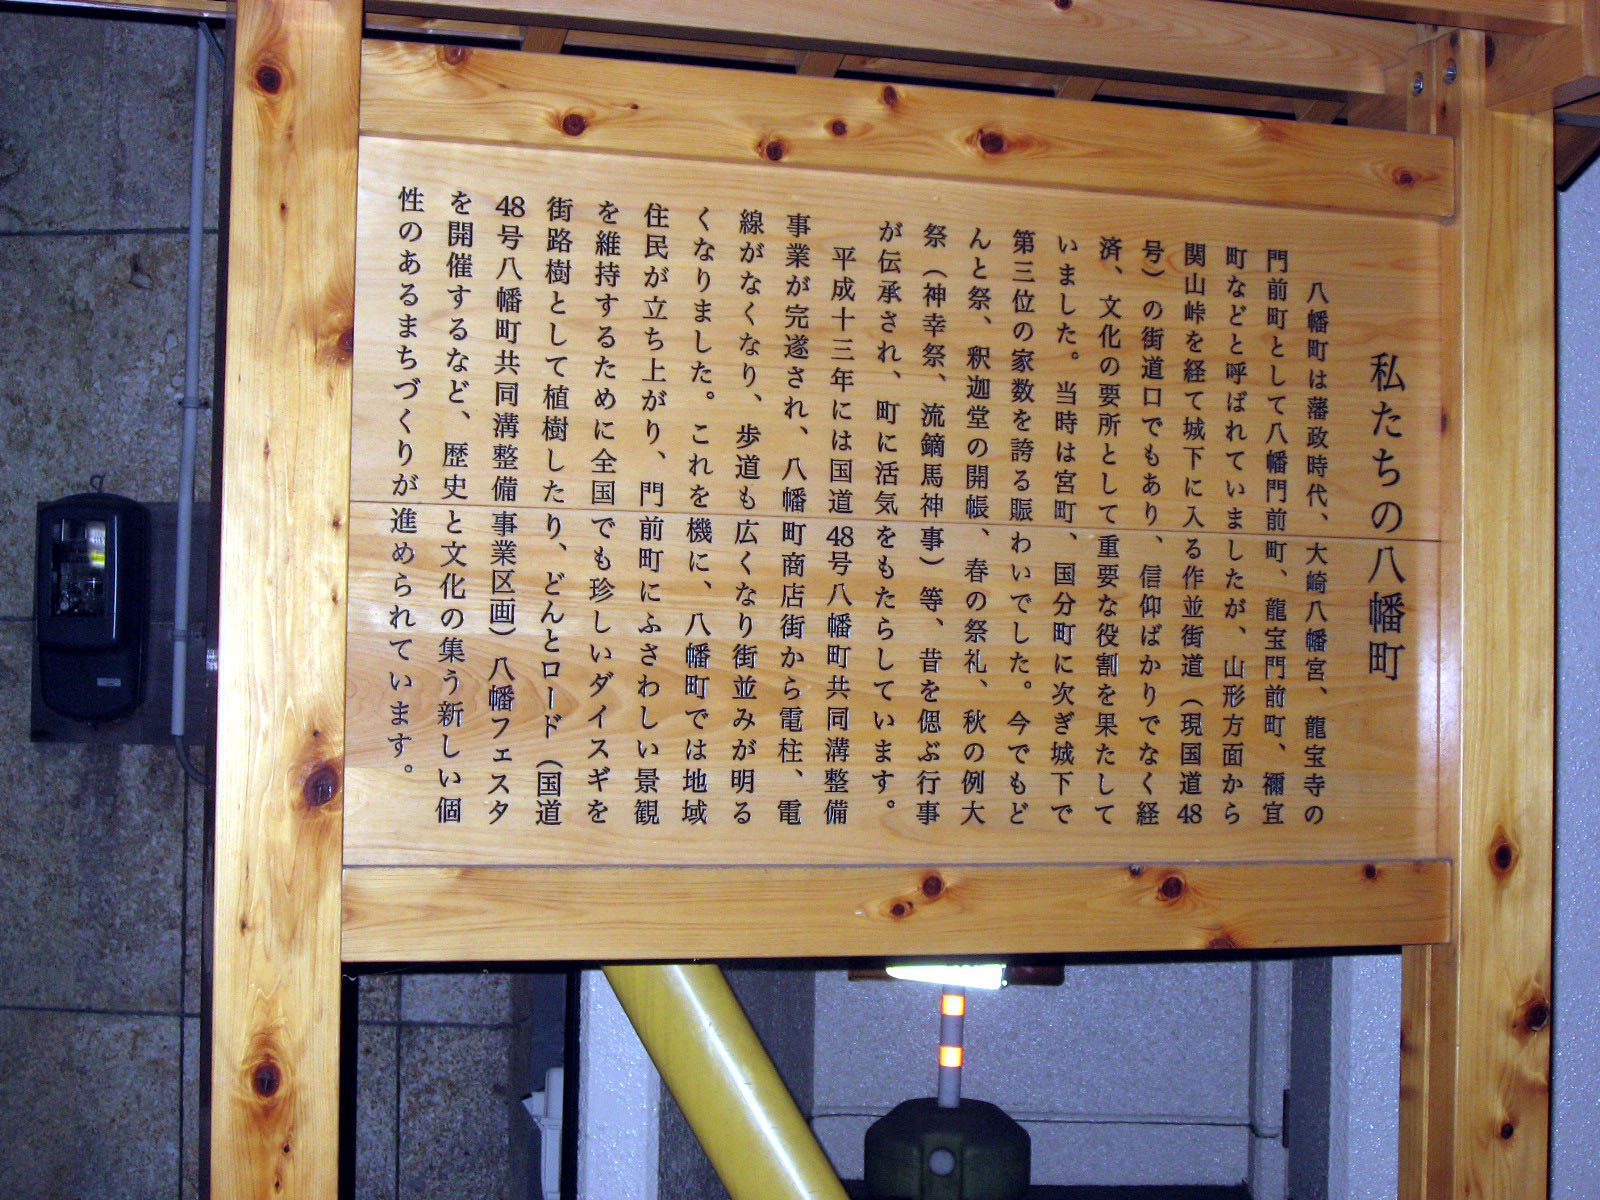 私たちの八幡町
八幡町は藩政時代、大崎八幡宮、龍宝寺の
門前町として八幡門前町、龍宝門前町、禰宜
町などと呼ばれていましたが、山形方面から
関山峠を経て城下に入る作並街道（現国道48
号）の街道口でもあり、信仰ばかりでなく経
済、文化の要所として重要な役割を果たして
いました。当時は宮町、国分町に次ぎ城下で
第三位の家数を誇る賑わいでした。今でもど
んと祭、釈迦堂の開帳、春の祭礼、秋の例大
祭（神幸祭、流鏑馬神事）等、昔を偲ぶ行事
が伝承され、町に活気をもたらしています。
平成十三年には国道48号八幡町共同溝整備
事業が完遂され、八幡町商店街から電柱、電
線がなくなり、歩道も広くなり街並みが明る
くなりました。これを機に、八幡町では地域
住民が立ち上がり、門前町にふさわしい景観
を維持するために全国でも珍しいダイスギを
街路樹として植樹したり、どんとロード（国道
48号八幡町共同溝整備事業区画）八幡フェスタ
を開催するなど、歴史と文化の集う新しい個
性のあるまちづくりが進められています。